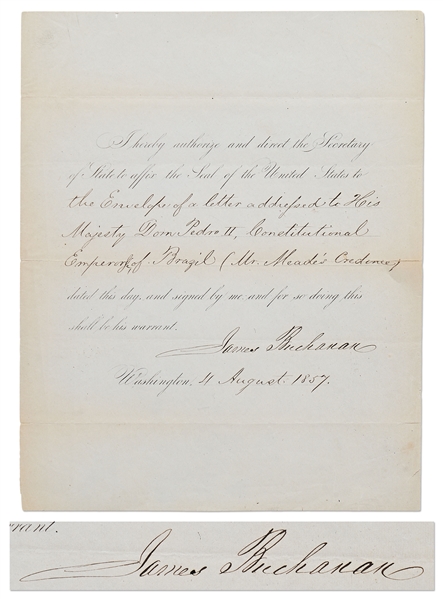 I hereby authorize and direct the Secretary
of State to affix the Seal of the United States to
the Envelope of a letter addressed to His
Majesty Dom Pedro II, Constitutional
Emperor of Brazil (Mr. Meade's Credence)
dated this day, and signed by me and for so doing this
shall be his warrant.
James Buchanan
Washington, 4 August. 1857.
rrant.
James Buchanan